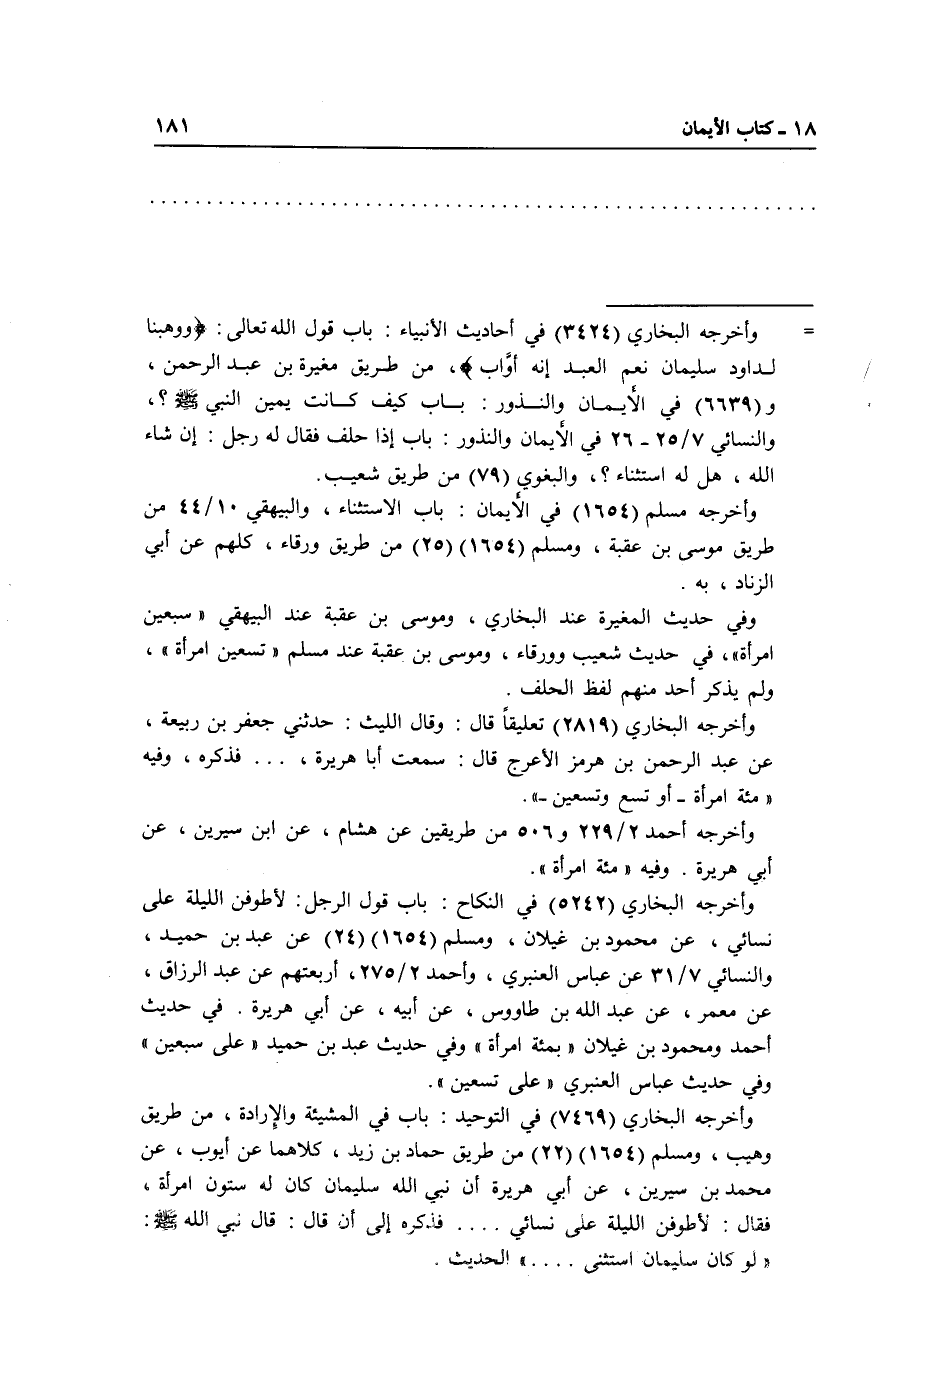 ١٨ ـ كتاب الأيمان ١٨١
. . . . . . . . . . . . . . . . . . . . . . . . . . . . . . . . . . . . . . . . . . . . . . . . . . . .
= وأخرجه البخاري (٣٤٢٤) في أحاديث الأنبياء : باب قول الله تعالى : ﴿ووهبنا
لـداود سليمان نعم العبـد إنه أوَّاب ﴾، من طـريق مغيرة بن عبـد الرحمن ،
و (٦٦٣٩) في الأَيمـان والنـذور : بـاب كيف كـانت يمين النبي ﷺ ؟،
والنسائي ٢٥/٧ ـ ٢٦ في الأَيمان والنذور : باب إذا حلف فقال له رجل : إن شاء
الله ، هل له استثناء ؟، والبغوي (٧٩) من طريق شعيب.
وأخرجه مسلم (١٦٥٤) في الأَيمان : باب الاستثناء ، والبيهقي ٤٤/١٠ من
طريق موسى بن عقبة ، ومسلم (١٦٥٤) (٢٥) من طريق ورقاء ، كلهم عن أبي
الزناد ، به .
وفي حديث المغيرة عند البخاري ، وموسى بن عقبة عند البيهقي « سبعين
امرأة»، في حديث شعيب وورقاء ، وموسى بن عقبة عند مسلم « تسعين امرأة » ،
ولم يذكر أحد منهم لفظ الحلف .
وأخرجه البخاري (٢٨١٩) تعليقاً قال : وقال الليث : حدثني جعفر بن ربيعة ،
عن عبد الرحمن بن هرمز الأعرج قال : سمعت أبا هريرة ، ... فذكره ، وفيه
« مئة امرأة ـ أو تسع وتسعين ـ».
وأخرجه أحمد ٢٢٩/٢ و ٥٠٦ من طريقين عن هشام ، عن ابن سيرين ، عن
أبي هريرة . وفيه « مئة امرأة ».
وأخرجه البخاري (٥٢٤٢) في النكاح : باب قول الرجل: لأطوفن الليلة على
نسائي ، عن محمود بن غيلان ، ومسلم (١٦٥٤) (٢٤) عن عبد بن حميـد ،
والنسائي ٣١/٧ عن عباس العنبري ، وأحمد ٢٧٥/٢، أربعتهم عن عبد الرزاق ،
عن معمر ، عن عبد الله بن طاووس ، عن أبيه ، عن أبي هريرة . في حديث
أحمد ومحمود بن غيلان « بمئة امرأة » وفي حديث عبد بن حميد « على سبعين »
وفي حديث عباس العنبري « على تسعين ».
وأخرجه البخاري (٧٤٦٩) في التوحيد : باب في المشيئة والإرادة ، من طريق
وهيب ، ومسلم (١٦٥٤) (٢٢) من طريق حماد بن زيد ، كلاهما عن أيوب ، عن
محمد بن سيرين ، عن أبي هريرة أن نبي الله سليمان كان له ستون امرأة ،
فقال : لأطوفن الليلة على نسائي .... فذكره إلى أن قال : قال نبي الله ﷺ :
« لو كان سليمان استثنى ....» الحديث .